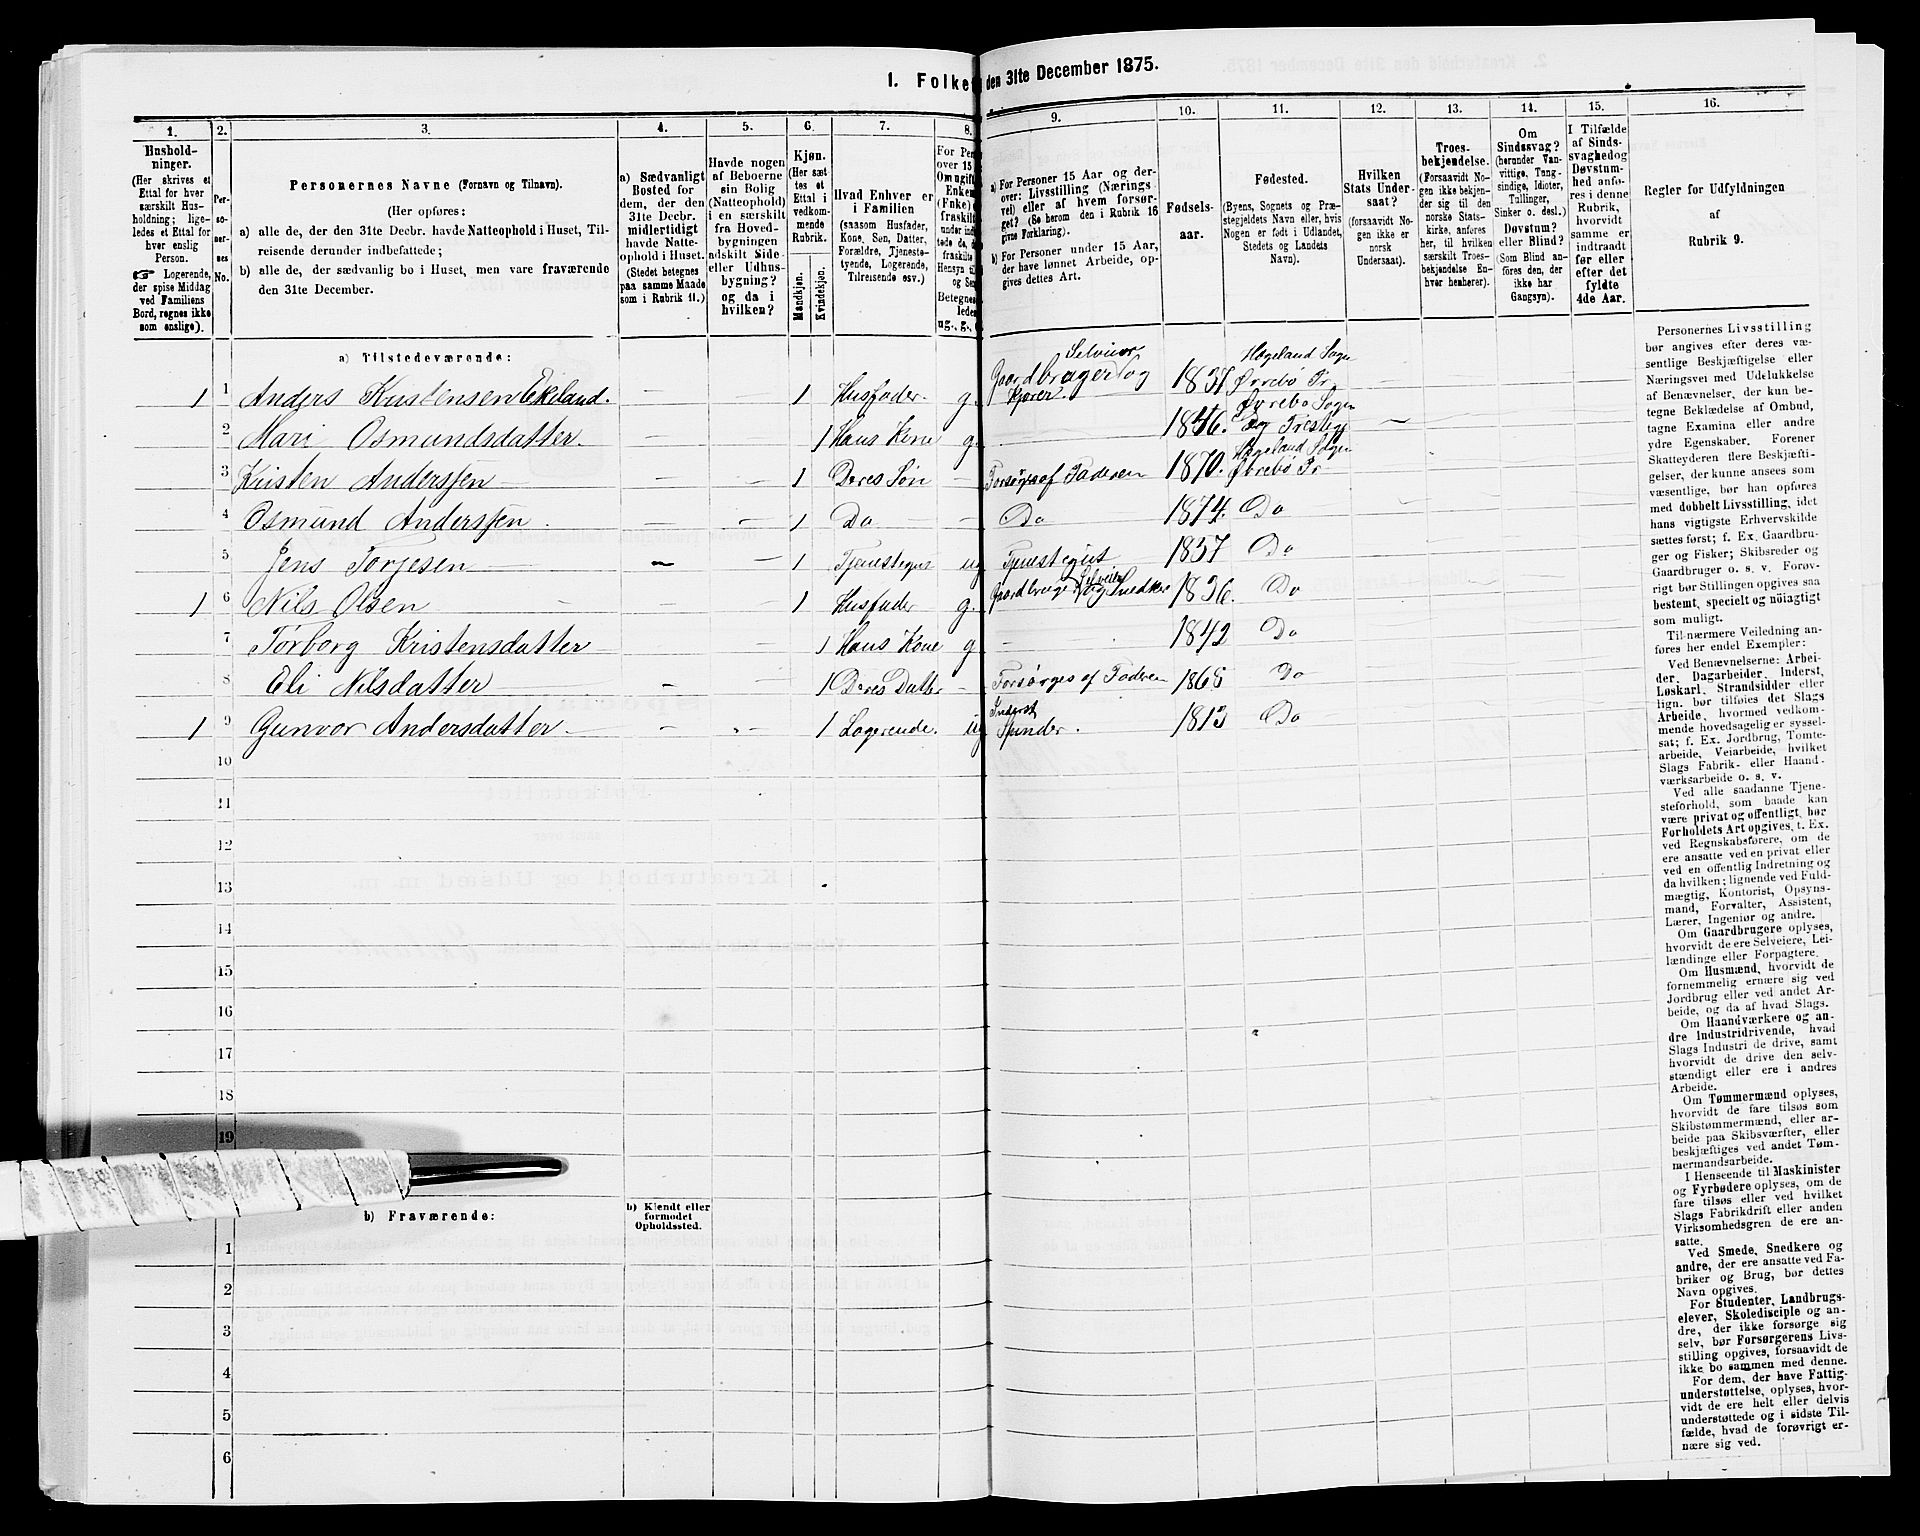 1. Folke
den 31te December 1875.
1.
2.
3.
4.
5.
6.
7.
8.
9.
10.
11.
12.
13.
14.
15.
16.
Hushold-
ninger.
(Her skrives et
Ettal for hver
særskilt Hus-
holdning; lige-
ledes et Ettal for
hver enslig
Person.
☞ Logerende,
der spise Middag
ved Familiens
Bord, regnes ikke
som enslige).
Per-
so-
ner-
nes
No.
Personernes Navne (Fornavn og Tilnavn).
(Her opføres:
a) alle de, der den 31te Decbr. havde Natteophold i Huset, Til-
reisende derunder indbefattede;
b) alle de, der sædvanlig bo i Huset, men vare fraværende
den 31te December.
a) Sædvanligt
Bosted for
dem, der den
31te Decbr.
midlertidigt
havde Natte-
ophold i Huset.
(Stedet betegnes
paa samme Maade
som i Rubrik 11.)
Havde nogen
af Beboerne
sin Bolig
(Natteophold)
i en særskilt
fra Hoved-
bygningen
adskilt Side-
eller Udhus-
bygning?
og da i
hvilken?
Kjøn.
(Her sæt-
tes et
Ettal i
vedkom-
mende
Rubrik.
Mandkjøn.
Kvindekjøn.
Hvad Enhver er
i Familien
(saasom Husfader,
Kone, Søn, Datter,
Forældre, Tjeneste-
tyende, Logerende,
Tilreisende osv.)
For Pe
over 15
Om ugift
Enke
(Enke) o
fraskilt
Betegnes
ledes
ug., g.,
a) For Personer 15 Aar og der-
over: Livsstilling (Nærings-
vei) eller af hvem forsør-
get? (Se herom den i Rubrik 16
givne Forklaring).
b) For Personer under 15 Aar,
der have lønnet Arbeide, op-
gives dettes Art.
Fødsels-
aar.
Fødested.
(Byens, Sognets og Præ-
stegjeldets Navn eller, hvis
Nogen er født i Udlandet,
Stedets og Landets
Navn).
Hvilken
Stats Under-
saat?
(forsaavidt No-
gen ikke er
norsk
Undersaat).
Troes-
bekjendelse.
(Forsaavidt No-
gen ikke bekjen-
der sig til den
norske Stats-
kirke, anføres
her, til hvilken
særskilt Troes-
bekjendelse En-
hver henhører).
Om
Sindssvag?
(herunder Van-
vittige, Tung-
sindige, Idioter,
Tullinger,
Sinker o. desl.)
Døvstum?
eller Blind?
(Som Blind an-
føres den, der
ikke har
Gangsyn).
I Tilfælde
af Sinds-
svaghed og
Døvstum-
hed anfø-
res i denne
Rubrik,
hvorvidt
samme er
indtraadt
før eller
efter det
fyldte
4de Aar.
Regler for Udfyldningen
af
Rubrik 9.
a) Tilstedeværende:
1 1 Anders Kristensen Ekeland. — 1 Husfader. g. Gaardbruger Selveier og Kjører. 1837 Hægeland Sogn Øvrebø Pr.
2 Mari Osmundsdatter. — — 1 Hans Kone g. — 1846. Øvrebø Sogn og Prestegj
3 Kristen Anderssen — — 1 Deres Søn — Forsørges af Faderen 1870. Hægeland Sogn Øvrebø Pr
4 Osmund Anderssen. — — 1 Do — Do 1874. Do
5 Jens Torjesen — — — 1 Tjenestegut ug Tjenestegut 1857 Do
1 6 Nils Olsen — — 1 Husfader g. Gaardbruger Selveier og Snedker 1836. Do
7 Torborg Kristensdatter — — 1 Hans Kone g — 1842 Do
8 Eli Nilsdatter — — — 1 Deres Datter — Forsørges af Faderen 1865 Do
1 9 Gunvor Andersdatter — — — 1 Logerende. ug Inderst Spinder. 1813 Do
10
11
12
13
14
15
16
17
18
19
b) Fraværende:
b) Kjendt eller
formodet
Opholdssted.
1
2
3
4
5
6
Personernes Livsstilling
bør angives efter deres væ-
sentlige Beskjæftigelse eller
Næringsvei med Udelukkelse
af Benævnelser, der kun be-
tegne Beklædelse af Ombud,
tagne Examina eller andre
ydre Egenskaber. Forener
Skatteyderen flere Beskjæfti-
gelser, der kunne ansees som
væsentlige, bør han opføres
med dobbelt Livsstilling, idet
hans vigtigste Erhvervskilde
sættes først; f. Ex. Gaardbru-
ger og Fisker; Skibsreder og
Gaardbruger o. s. v. Forøv-
rigt bør Stillingen opgives saa
bestemt, specielt og nøiagtigt
som muligt.
Til nærmere Veiledning an-
føres her endel Exempler:
Ved Benævnelserne: Arbei-
der, Dagarbeider, Inderst,
Løskarl, Strandsidder eller
lign. bør tilføies det Slags
Arbeide, hvormed vedkom-
mende hovedsagelig er syssel-
sat; f. Ex. Jordbrug, Tomte-
arbeide, Veiarbeide, hvilket
Slags Fabrik- eller Haand-
værksarbeide o. s. v.
Ved alle saadanne Tjene-
steforhold, som baade kan
være privat og offentligt, bør
Forholdets Art opgives, t. Ex.
ved Regnskabsførere, om de
ere ansatte ved en privat eller
ved en offentlig Indretning og
da hvilken; lignende ved Fuld-
mægtig, Kontorist, Opsyns-
mand, Forvalter, Assistent,
Lærer, Ingeniør og andre.
Om Gaardbrugere oplyses,
hvorvidt de ere Selveiere, Lei-
lændinge eller Forpagtere.
Om Husmænd, hvorvidt de
fornemmelig ernære sig ved
Jordbrug eller ved andet Ar-
beide, og da af hvad Slags.
Om Haandværkere og an-
dre Industridrivende, hvad
Slags Industri de drive, samt
hvorvidt de drive den selv-
stændigt eller ere i andres
Arbeide.
Om Tømmermænd oplyses,
hvorvidt de fare tilsøs som
Skibstømmermænd, eller ar-
beide paa Skibsværfter, eller
beskjæftiges ved andet Tøm-
mermandsarbeide.
I Henseende til Maskinister
og Fyrbødere oplyses, om de
fare tilsøs eller ved hvilket
Slags Fabrikdrift eller anden
Virksomhedsgren de ere an-
satte.
Ved Smede, Snedkere og
andre, der ere ansatte ved Fa-
briker og Brug, bør dettes
Navn opgives.
For Studenter, Landbrugs-
elever, Skoledisciple og an-
dre, der ikke forsørge sig
selv, bør Forsørgerens Livs-
stilling opgives, forsaavidt de
ikke bo sammen med denne.
For dem, der have Fattig-
understøttelse, oplyses, hvor-
vidt de ere helt eller delvis
understøttede og i sidste Til-
fælde, hvad de forøvrigt er-
nære sig ved.